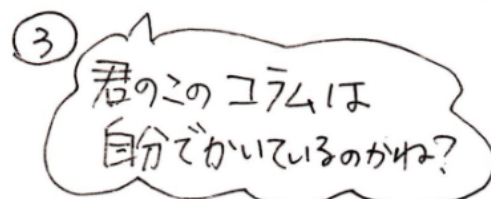 ③
君のこのコラムは
自分でかいているのかね?